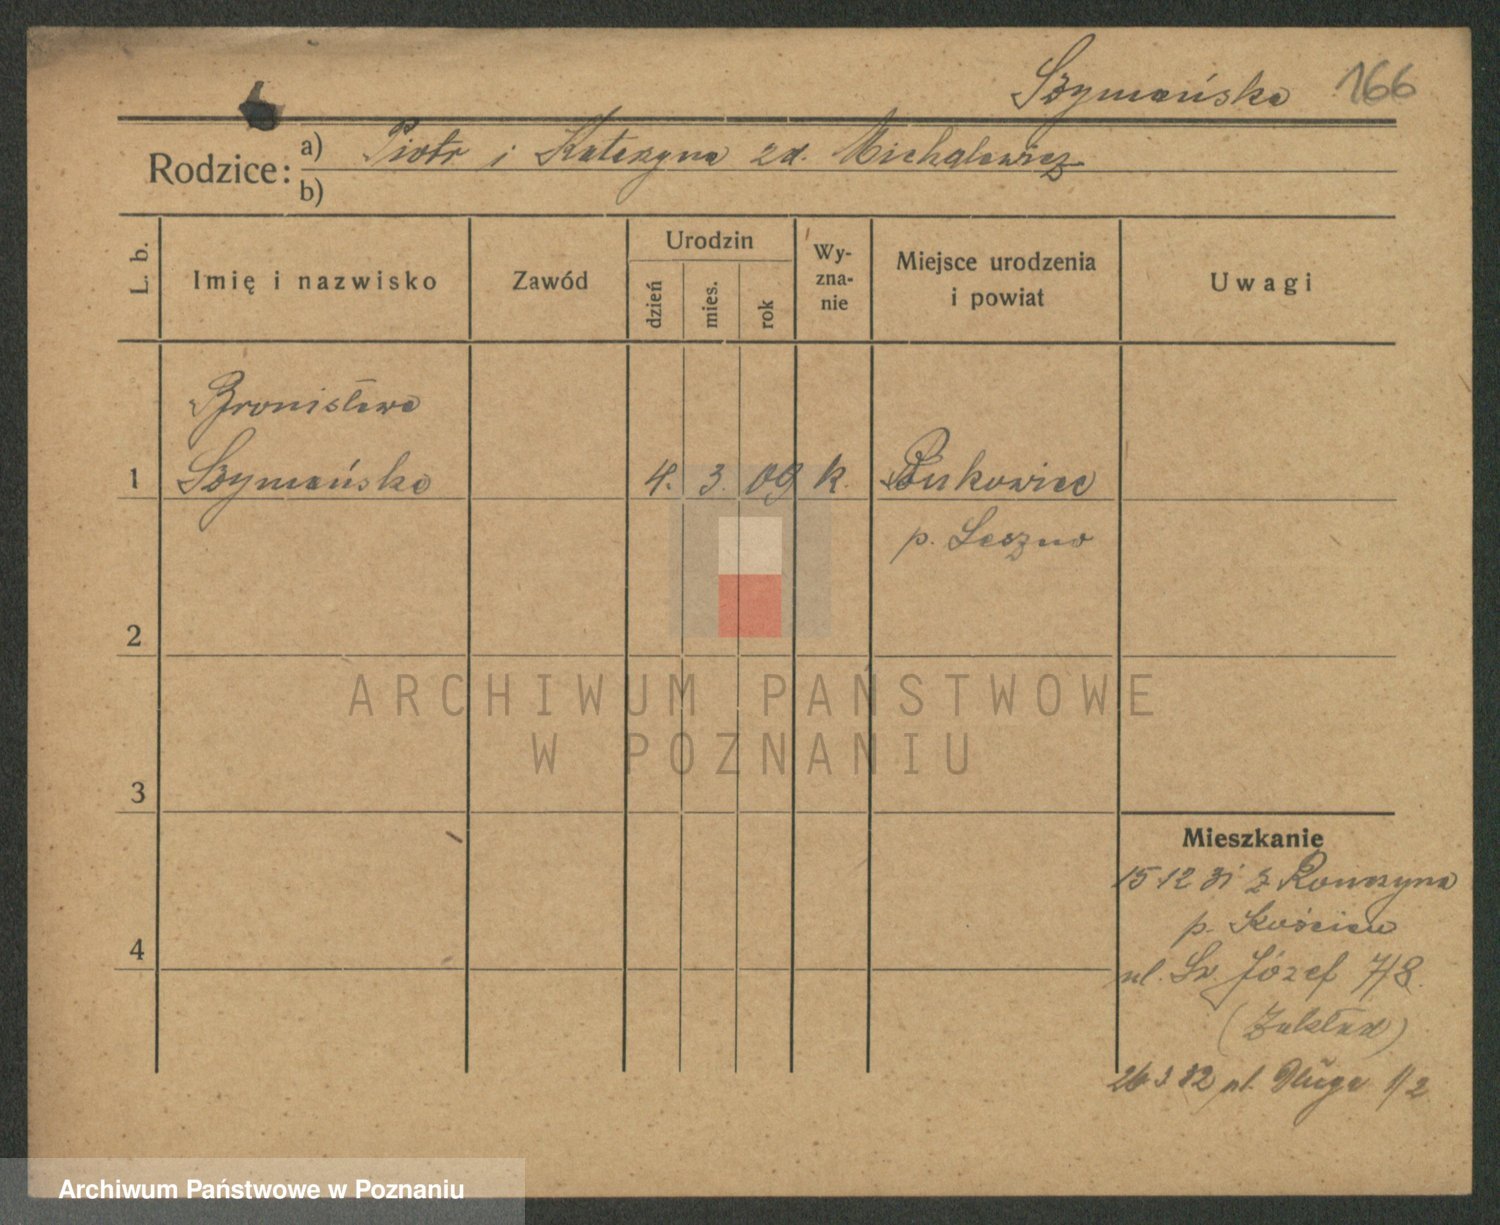 Szymańska 166
Rodzice: a) Piotr i Katarzyna zd. Michalewicz
b)
L. b.
Imię i nazwisko
Zawód
Urodzin
dzień
mies.
rok
Wy-
zna-
nie
Miejsce urodzenia
i powiat
Uwagi
Bronisława
1 Szymańska 4. 3. 09 k. Bukowiec
p. Leszno
2
ARCHIWUM PAŃSTWOWE
W POZNANIU
3
Mieszkanie
15 12 31 z
p. Kościan
4
ul. Św. Józef 7/8.
(Zakład)
26 3 32 ul. Długa 1/2
Archiwum Państwowe w Poznaniu